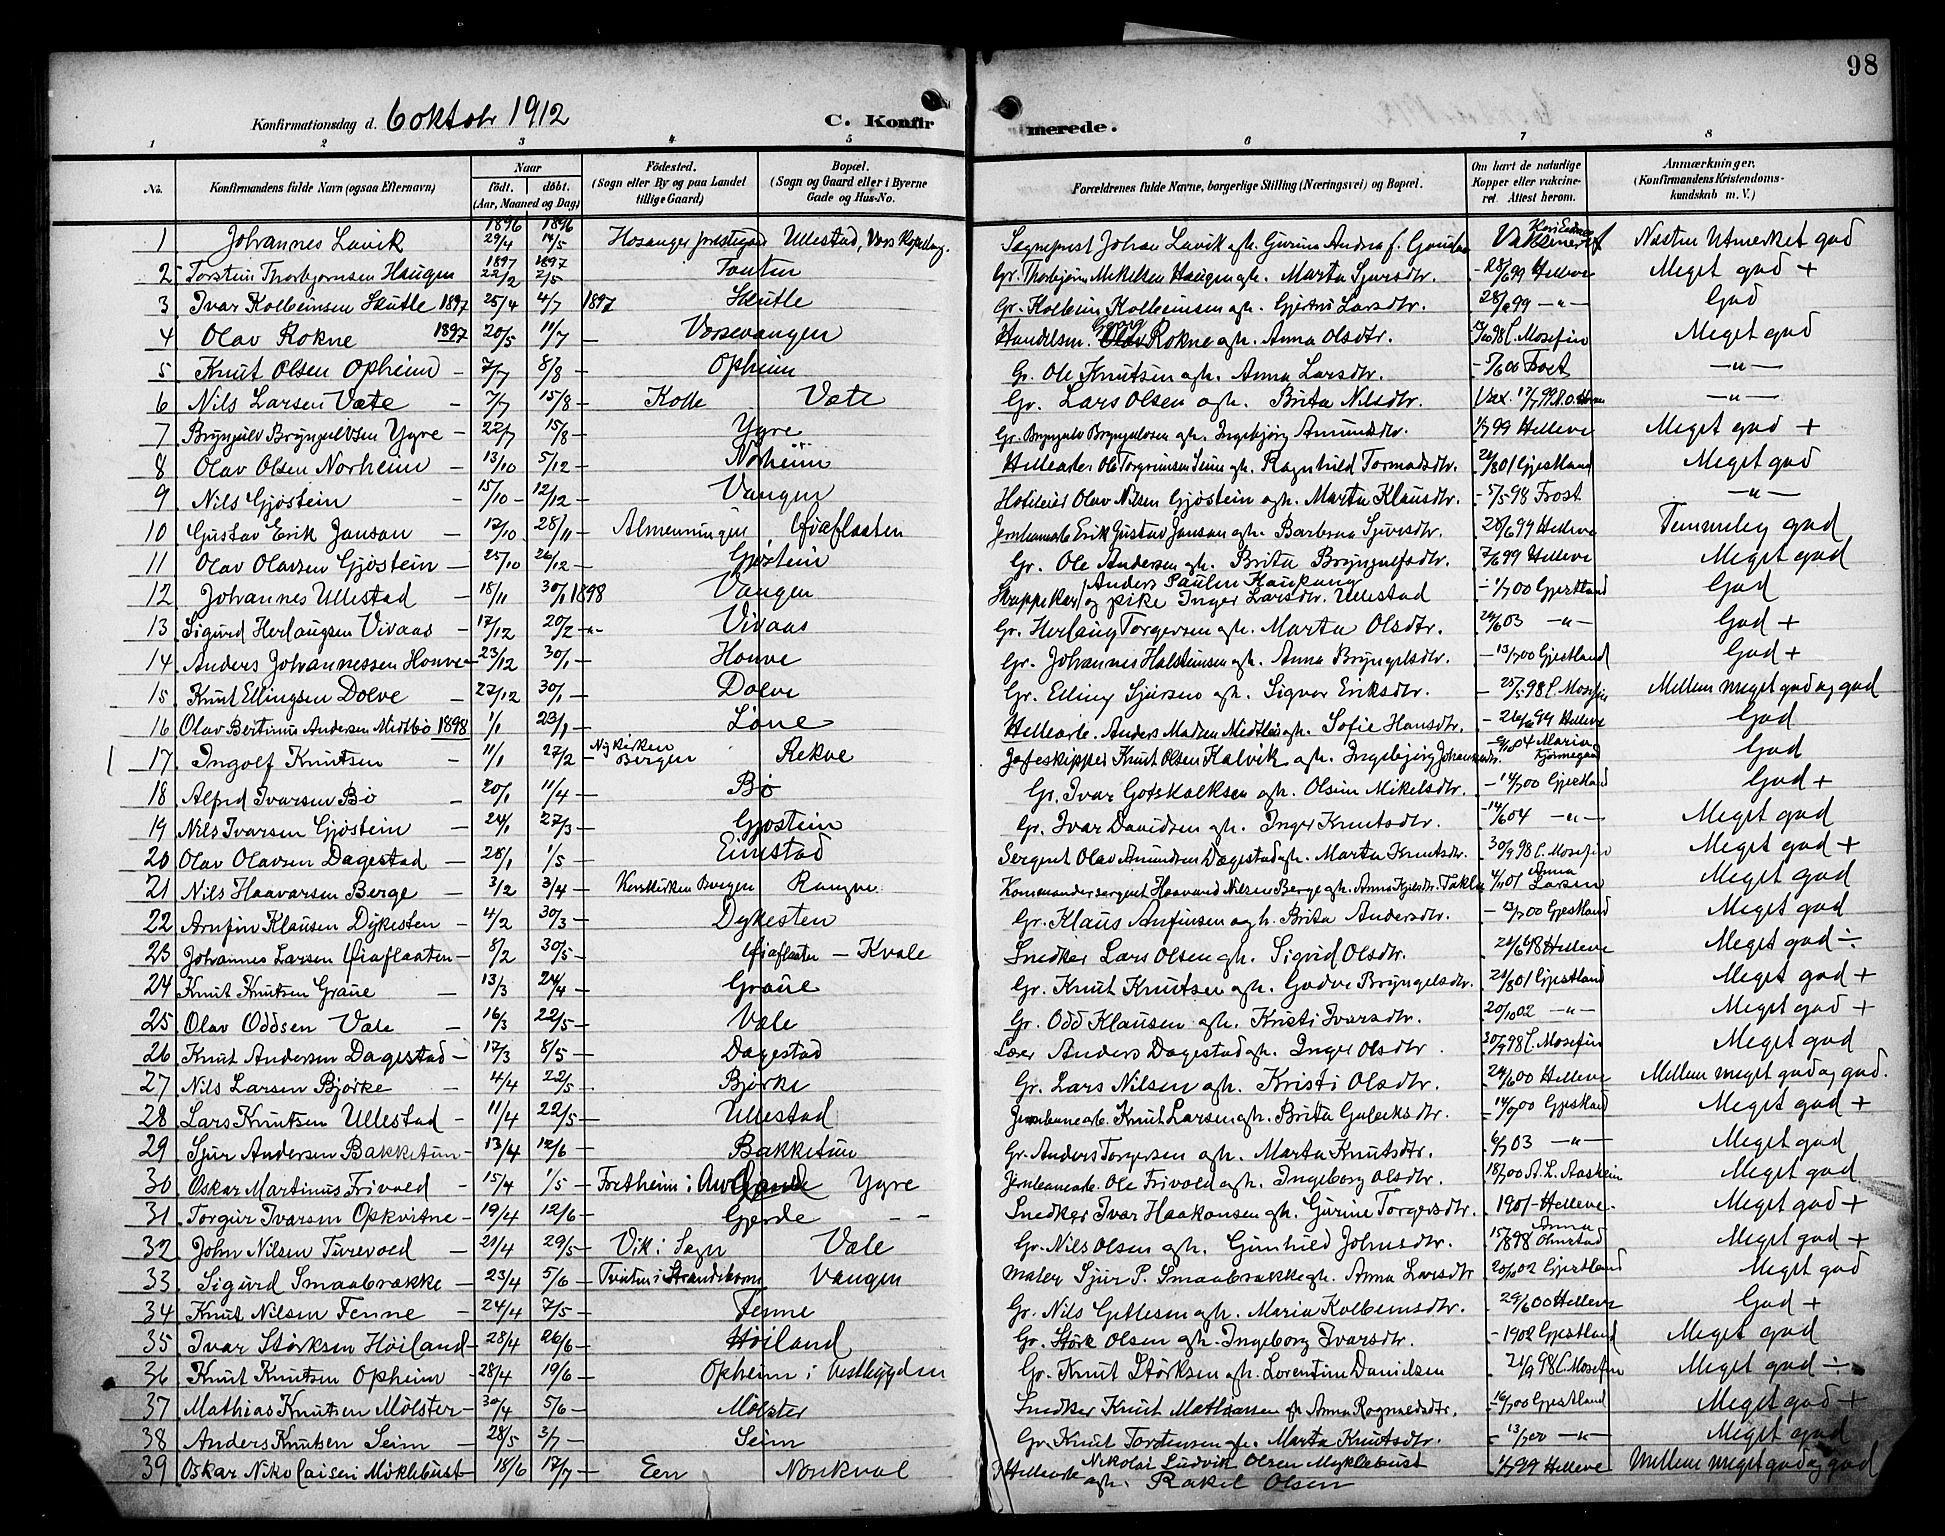 98
Konfirmationsdag d. 6 oktobr 1912 C. Konfirmerede.
1 2 3 4 5 6 7 8
No. Konfirmandens fulde Navn (ogsaa Efternavn) Naar født. døbt. (Aar, Maaned og Dag) Fødested. (Sogn eller By og paa Landet tillige Gaard) Bopæl. (Sogn og Gaard eller i Byerne Gade og Hus-No. Forældrenes fulde Navne, borgerlige Stilling (Næringsvei) og Bopæl. Om havt de naturlige Kopper eller vakcineret. Attest herom. Anmærkninger. (Konfirmandens Kristendomskundskab m. V.)
1 Johannes Lavik 1896 29/4 1896 14/5 Hosanger prestegård Ullestad, Vors Sogneprest Johan Lavik Næsten Utmerket god
2 Torstein Thorbjørnsen Haugen 1897 22/2 1897 2/5 Gr. Thorbjørn Mikelsen Haugen ogh. Marta Sjursdtr. 28/6 99 Helleve Meget god +
3 Ivar Kolbeinsen Skutle 1897 25/4 4/7 1897 Skutle Gr. Kolbein Kolbeinsen ogh. Gjertrú Larsdtr. 28/6 99 —"— God
4 Olav Rokne 1897 20/5 11/7 — Vossevangen Handelsm. Rokne ogh. Anna Olsdtr. L. Mosefin Meget god
5 Knut Olsen Opheim — 7/7 8/8 — Opheim Gr. Ole Knutsen ogh. Anna Larsdtr. Frost —"—
6 Nils Larsen Væte — 7/7 15/8 — Kolle Væte Gr. Lars Olsen ogh. Brita Nilsdtr. —"—
7 Bryngulv Bryngulvsen Ygre — 22/7 15/8 — Ygre Gr. Bryngulv Bryngulvsen ogh. Ingebjørg Amundsdtr. 1/7 99 Helleve Meget god +
8 Olav Olsen Norheim — 13/10 5/12 — Norheim Hellearb. Ole Torgrimsen Seim ogh. Ragnhild Tormodsdtr. 21/8 01 Gjestland Meget god
9 Nils Gjøstein — 15/10 — 12/12 — Vangen Olav Nilsen Gjøstein ogh. Marta Klausdtr. — 5/5 98 Frost —"—
10 Gustav Erik Janson — 17/10 28/11 — Almenningen Øiaflaaten Jernbanearb Erik Gustav Janson ogh. Barbraa Sjursdtr. 28/6 99 Helleve Temmeleg god
11 Olav Olavsen Gjøstein — 25/10 26/12 — Gjøstein Gr. Ole Andersen ogh. Brita Bryngulfsdtr. 7/6 99 Helleve Meget god
12 Johannes Ullestad — 18/11 30/1 1898 Vangen Anders Paulin Kaupang og pike Inger Larsdtr. Ullestad — 1/7 00 Gjestland God
13 Sigurd Herlaugsen Vivaas — 17/12 20/2 —"— Vivaas Gr. Herlaug Torgersen ogh. Marta Olsdtr. 24/6 03 —"— God +
14 Anders Johannessen Honve — 23/12 30/1 — Honve Gr. Johannes Halsteinsen ogh. Anna Bryngelsdtr. — 13/7 00 Gjestland God +
15 Knut Ellingsen Dolve — 27/12 30/1 — Dolve Gr. Elling Sjursen ogh. Sigvor Eriksdtr. — 25/5 98 L. Mosefin Mellem meget god og god
16 Olav Bertinus Andersen Midtbø 1898 1/1 23/1 — Lone Hellearb. Anders Madsen Midtbø ogh. Sofie Hansdtr. — 26/6 99 Helleve God
17 Ingolf Knutsen — 11/1 27/2 — Nykirken Bergen Rekve Jaktskipper Knut Olsen Kalvik ogh. Ingebjørg Johannesdtr. Maria God
18 Alfred Ivarsen Bø — 20/1 11/4 — Bø Gr. Ivar Gotskalksen ogh. Olsine Mikelsdtr. — 14/7 00 Gjestland God +
19 Nils Ivarsen Gjøstein — 24/1 27/3 — Gjøstein Gr. Ivar Davidsen ogh. Inger Knutsdtr. — 14/6 04 —"— Meget god
20 Olav Olavsen Dagestad — 28/1 1/5 — Eimstad Sergent Olav Amundsen Dagestad ogh. Marta Knutsdtr. 30/9 98 L. Mosefin Meget god +
21 Nils Haavarsen Berge — 3/2 3/4 — Korskirken Bergen Rongve Kommandersergent Haavard Nilsen Berge ogh. Anna 4/11 01 Anna Larsen Meget god
22 Arnfin Klausen Dykesten — 4/2 30/3 — Dykesten Gr. Klaus Arnfinsen og h. Brita Andersdtr. — 13/7 00 Gjestland Meget god
23 Johannes Larsen Øiaflaaten — 8/2 30/5 — Øiaflaaten — Kvale Snedker Lars Olsen ogh. Sigrid Olsdtr. 21/6 98 Helleve Meget god ÷
24 Knut Knutsen Graue — 13/3 24/4 — Graue Gr. Knut Knutsen ogh. Godve Bryngelsdtr. 21/8 01 Gjestland Meget god +
25 Olav Oddsen Væle — 16/3 22/5 — Væle Gr. Odd Klausen ogh. Kristi Ivarsdtr. 20/10 02 —"— Meget god +
26 Knut Andersen Dagestad — 17/3 8/5 — Dagestad Lærer Anders Dagestad ogh. Inger Olsdtr. 30/9 98 L. Mosefin Meget god
27 Nils Larsen Bjørke — 4/4 22/5 — Bjørke Gr. Lars Nilsen ogh. Kristi Olsdtr. 24/6 00 Helleve Mellem meget god og god.
28 Lars Knutsen Ullestad — 11/4 22/5 — Ullestad Jernbanearb. Knut Larsen ogh. Britta Guleiksdtr. — 14/7 00 Gjestland Meget god +
29 Sjur Andersen Bakketun — 13/4 12/6 — Bakketun Gr. Anders Torgersen ogh. Marta Knutsdtr. 6/7 03 —"— Meget god
30 Oskar Martinus Frivold — 15/4 1/5 — Fretheim i Aurland Ygre Jernbanearb. Ole Frivold ogh. Ingeborg Olsdtr. 18/7 00 A. L. Aasheim Meget god
31 Torgeir Ivarsen Opkvitne — 19/4 12/6 — Gjerde — — Snedker Ivar Haakonsen ogh. Gurine Torgersdtr. 1901 - Helleve. Meget god +
32 John Nilsen Turevold — 21/4 29/5 — Vik i Sogn Væle Gr. Nils Olsen ogh. Gunhild Johnsdtr. 15/8 98 Anna Olmstad Meget god +
33 Sigurd Smaabrække — 23/4 5/6 — Tvinten i Strandebarm Vangen Maler Sjur P. Smaabrække ogh. Anna Larsdtr 20/10 02 Gjestland Meget god
34 Knut Nilsen Fenne — 24/4 7/5 — Fenne Gr. Nils Gitlesen ogh. Maria Kolbeinsdtr. 29/6 00 Helleve God +
35 Ivar Størksen Høiland — 28/4 26/6 — Høiland Gr. Størk Olsen ogh. Ingeborg Ivarsdtr. — 1902 Gjestland Meget god
36 Knut Knutsen Opheim — 28/4 19/6 — Opheim i Vestbygden Gr. Knut Størksen ogh. Lorentine Danielsen 21/9 98 L. Mosefin Meget god ÷
37 Mathias Knutsen Mølster — 30/4 5/6 — Mølster Snedker Knut Mathiassen ogh. Anna Rognaldsdtr. — 16/7 00 Gjestland Meget god +
38 Anders Knutsen Seim — 28/5 3/7 — Seim Gr. Knut Torstensen ogh. Marta Knutsdtr. — 13/7 00 —"— Meget god
39 Oskar Nikolaisen Möklebust — 18/6 17/7 — Een Norekval Hellearb Nikolai Ludvik Olsen Myklebust ogh. Rakel Olsen 1/7 99 Helleve Mellem meget god og god